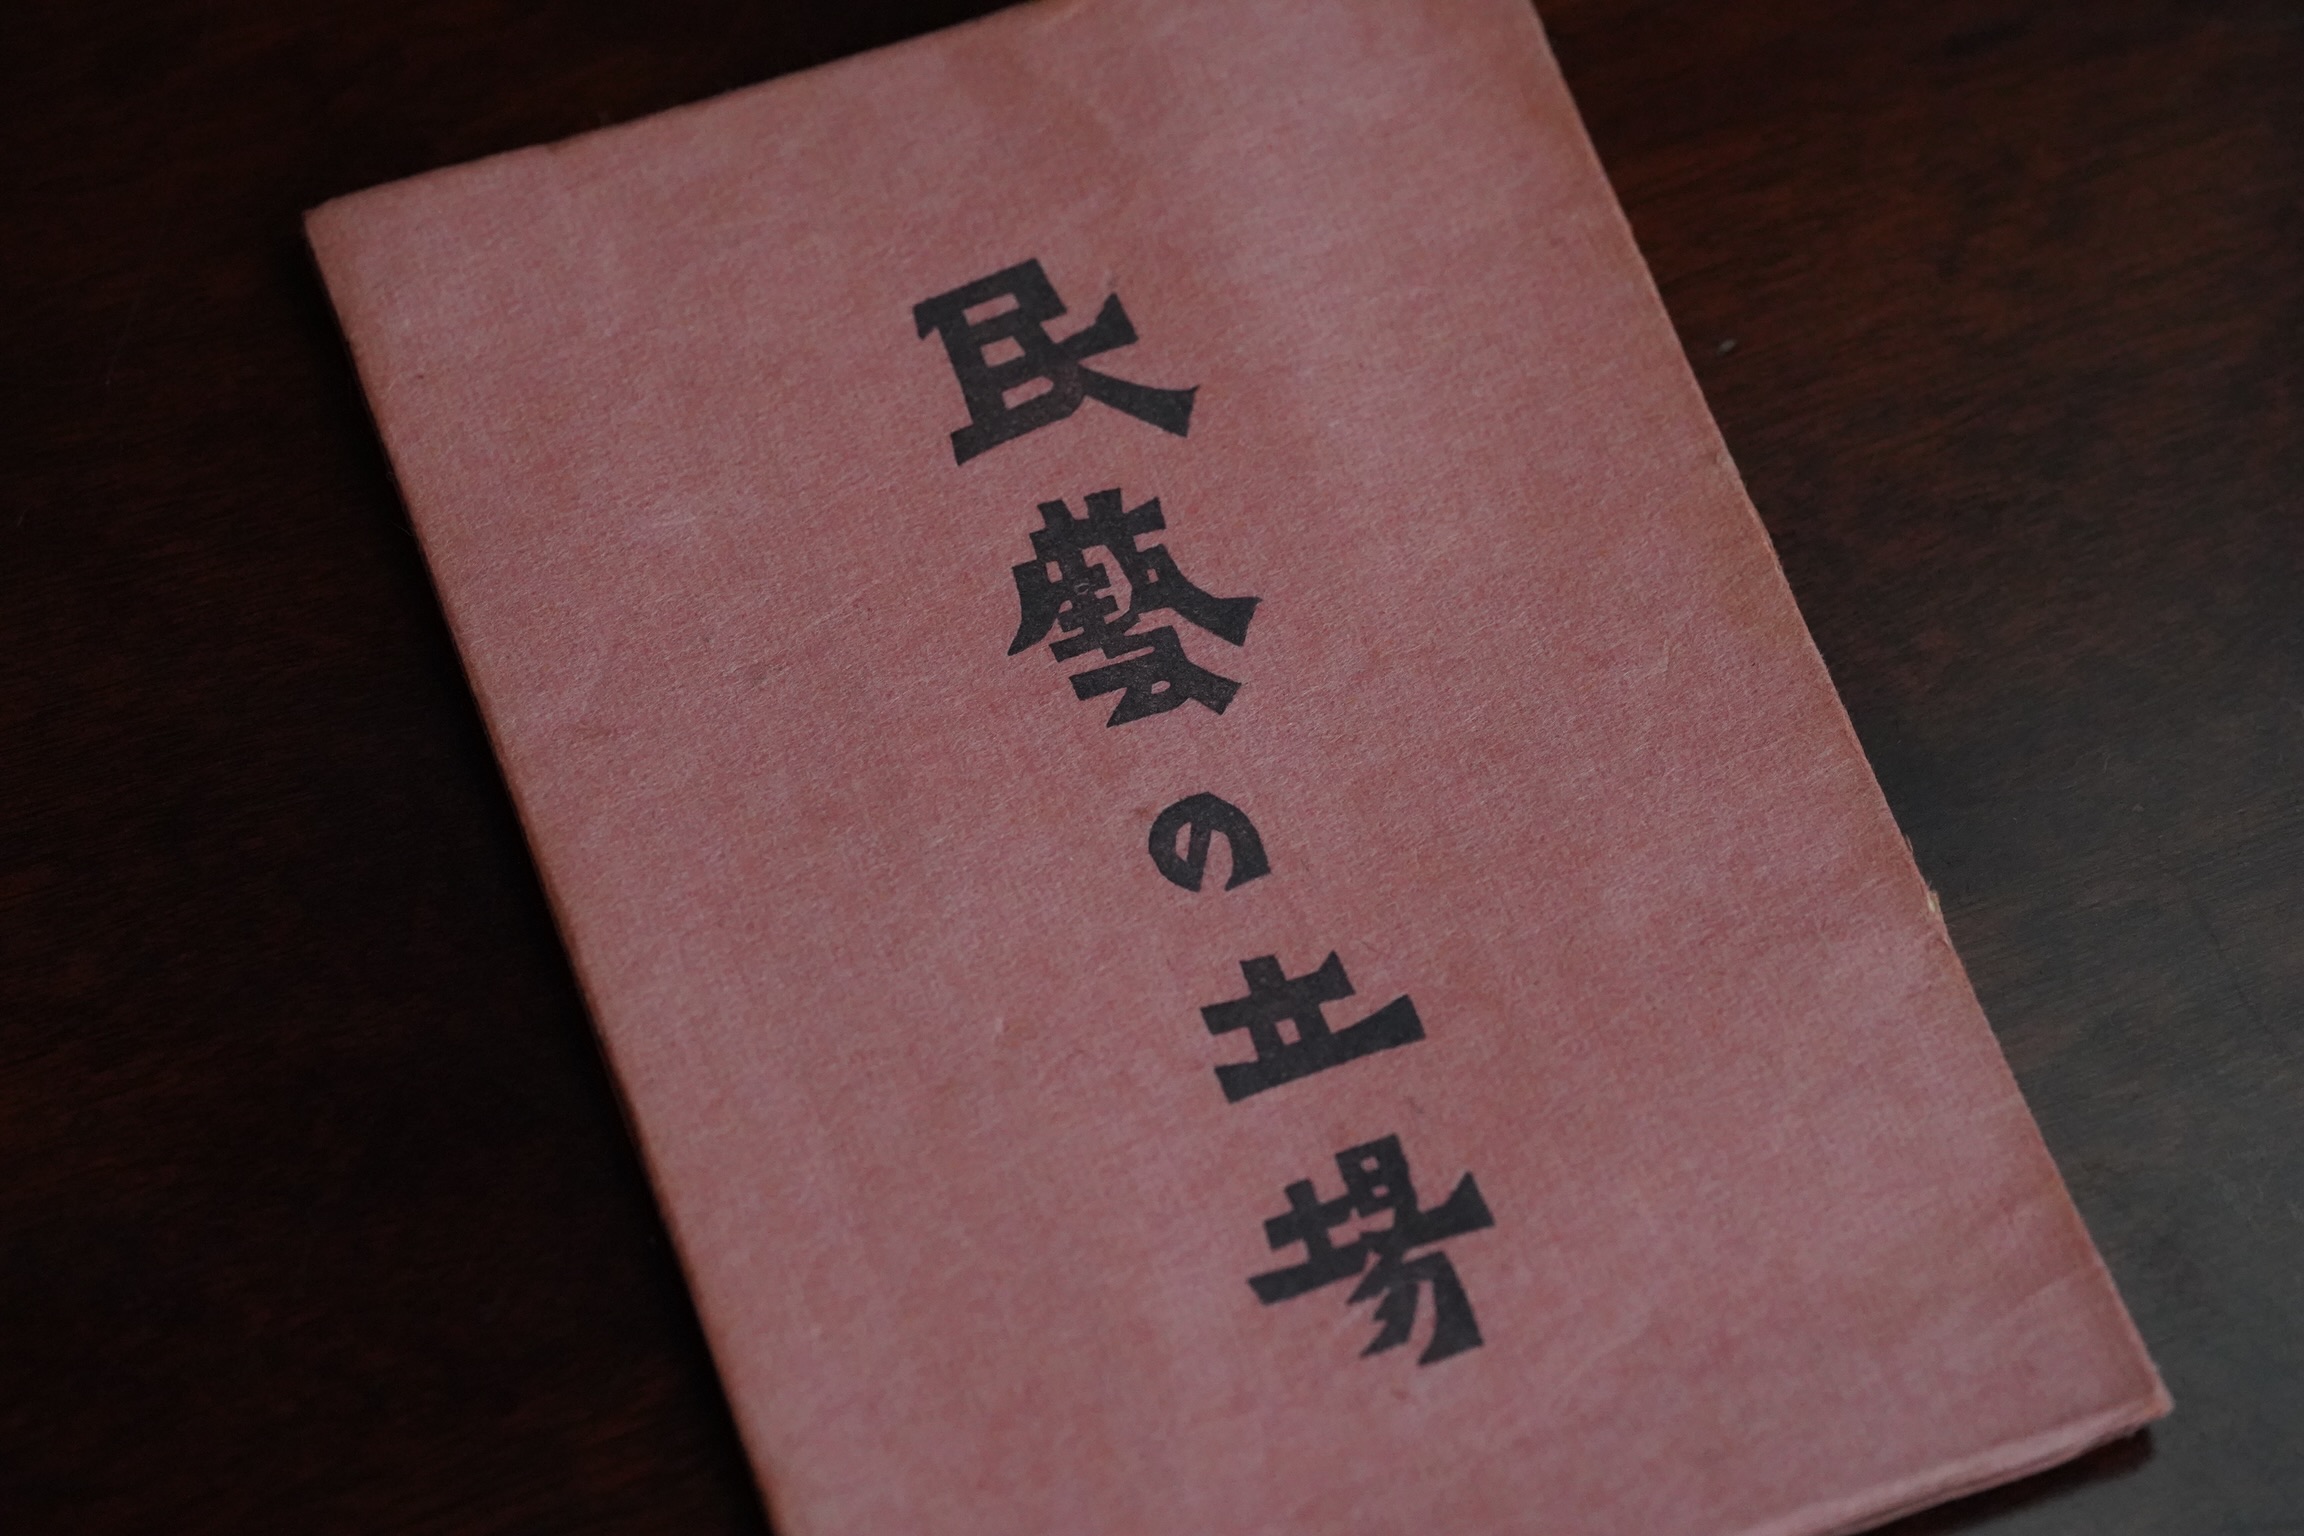 民藝の立場